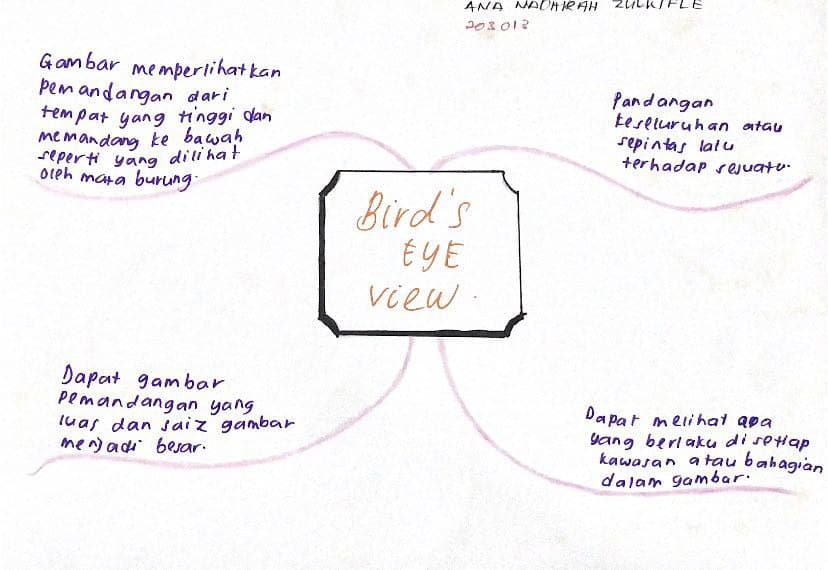 ANA NADHIRAH ZULKIFLE
203013
Gambar memperlihatkan
pemandangan dari
tempat yang tinggi dan
memandang ke bawah
seperti yang dilihat
oleh mata burung.
Pandangan
keseluruhan atau
sepintas lalu
terhadap sesuatu.
Bird's
EYE
view.
Dapat gambar
pemandangan yang
luas dan saiz gambar
menjadi besar.
Dapat melihat apa
yang berlaku di setiap
kawasan atau bahagian
dalam gambar.